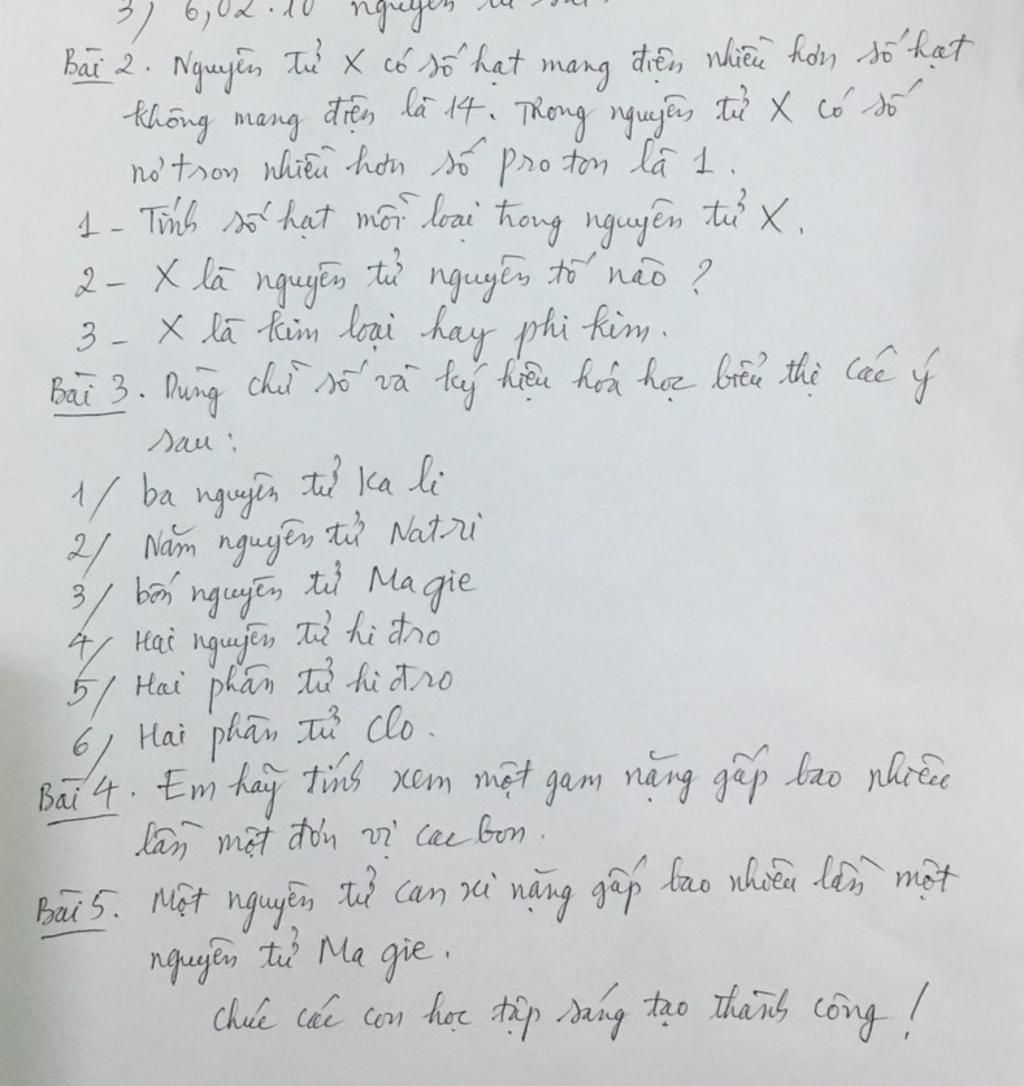 3/ 6,02.10 nguyên tử
Bài 2. Nguyên tử X có số hạt mang điện nhiều hơn số hạt
không mang điện là 14. Trong nguyên tử X có số
nơtron nhiều hơn số proton là 1.
1- Tính số hạt mỗi loại trong nguyên tử X.
2- X là nguyên tử nguyên tố nào?
3- X là kim loại hay phi kim.
Bài 3. Dùng chữ số và ký hiệu hoá học biểu thị các ý
sau:
1/ ba nguyên tử Ka li
2/ Năm nguyên tử Natri
3/ bốn nguyên tử Ma gie
4/ Hai nguyên tử hi đro
5/ Hai phân tử hi đro
6/ Hai phân tử Clo.
Bài 4. Em hãy tính xem một gam nặng gấp bao nhiêu
lần một đơn vị cac bon.
Bài 5. Một nguyên tử can xi nặng gấp bao nhiêu lần một
nguyên tử Ma gie.
Chúc các con học tập sáng tạo thành công!